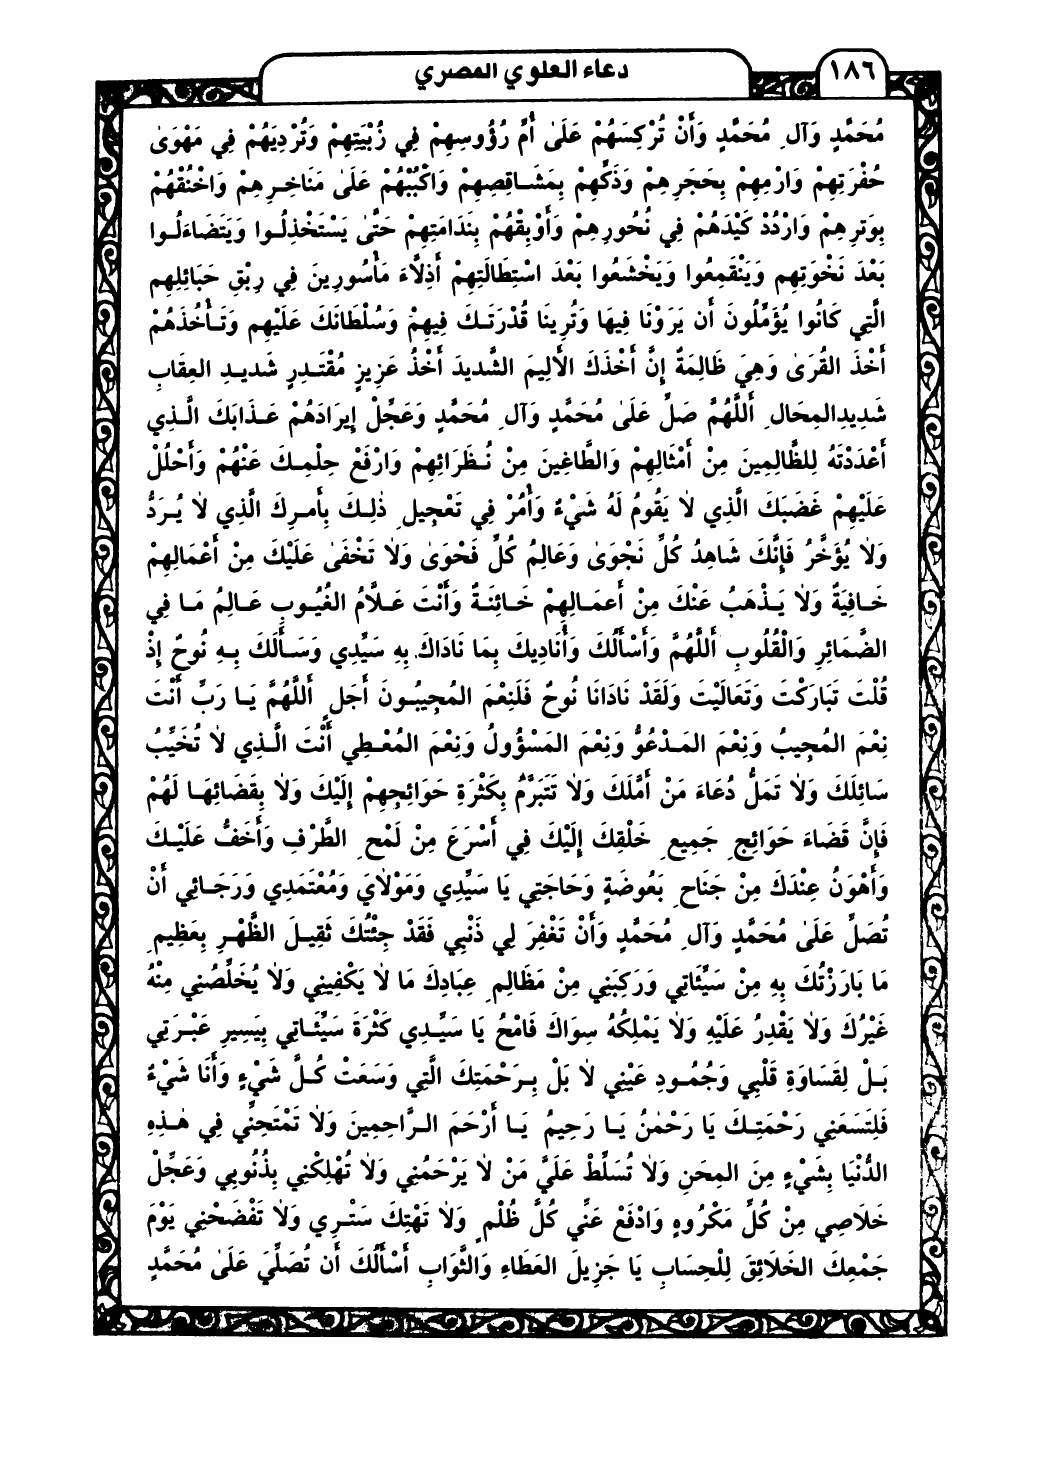 ١٨٦
دعاء العلوي المصري
مُحَمَّدٍ وَآلِ مُحَمَّدٍ وَأَنْ تُرْكِسَهُمْ عَلَىٰ أُمِّ رُؤُوسِهِمْ فِي زُبْيَتِهِمْ وَتُرْدِيَهُمْ فِي مَهْوَىٰ
حُفْرَتِهِمْ وَارْمِهِمْ بِحَجَرِهِمْ وَذَكِّهِمْ بِمَشَاقِصِهِمْ وَاكْبُبْهُمْ عَلَىٰ مَنَاخِرِهِمْ وَاخْنُقْهُمْ
بِوَتَرِهِمْ وَارْدُدْ كَيْدَهُمْ فِي نُحُورِهِمْ وَأَوْبِقْهُمْ بِنَدَامَتِهِمْ حَتَّىٰ يَسْتَخْذِلُوا وَيَتَضَاءَلُوا
بَعْدَ نَخْوَتِهِم وَيَنْقَمِعُوا وَيَخْشَعُوا بَعْدَ اسْتِطَالَتِهِمْ أَذِلَّاءَ مَأْسُورِينَ فِي رِبْقِ حَبَائِلِهِم
الَّتِي كَانُوا يُؤَمِّلُونَ أَن يَرَوْنَا فِيهَا وَتُرِينَا قُدْرَتَكَ فِيهِمْ وَسُلْطَانَكَ عَلَيْهِم وَتَأْخُذَهُمْ
أَخْذَ القُرَىٰ وَهِيَ ظَالِمَةٌ إِنَّ أَخْذَكَ الأَلِيمَ الشَّدِيدَ أَخْذُ عَزِيزٍ مُقْتَدِرٍ شَدِيدِ العِقَابِ
شَدِيدِالمِحَالِ أَللَّهُمَّ صَلِّ عَلَىٰ مُحَمَّدٍ وَآلِ مُحَمَّدٍ وَعَجِّلْ إِيرَادَهُمْ عَذَابَكَ الَّذِي
أَعْدَدْتَهُ لِلظَّالِمِينَ مِنْ أَمْثَالِهِمْ وَالطَّاغِينَ مِنْ نُظَرَائِهِمْ وَارْفَعْ حِلْمِكَ عَنْهُمْ وَأَحْلُلْ
عَلَيْهِمْ غَضَبَكَ الَّذِي لَا يَقُومُ لَهُ شَيْءٌ وَأْمُرْ فِي تَعْجِيلِ ذٰلِكَ بِأَمرِكَ الَّذِي لَا يُرَدُّ
وَلَا يُؤَخَّرُ فَإِنَّكَ شَاهِدُ كُلِّ نَجْوَىٰ وَعَالِمُ كُلِّ فَحْوَىٰ وَلَا تَخْفَىٰ عَلَيْكَ مِنْ أَعْمَالِهِمْ
خَافِيَةٌ وَلَا يَذْهَبُ عَنْكَ مِنْ أَعمَالِهِمْ خَائِنَةٌ وَأَنْتَ عَلَّامُ الغُيُوبِ عَالِمُ مَا فِي
الضَّمَائِرِ وَالْقُلُوبِ أَللَّهُمَّ وَأَسْأَلُكَ وَأُنَادِيكَ بِمَا نَادَاكَ بِهِ سَيِّدِي وَسَأَلَكَ بِهِ نُوحٌ إِذْ
قُلْتَ تَبَارَكْتَ وَتَعَالَيْتَ وَلَقَدْ نَادَانَا نُوحٌ فَلَنِعْمَ المُجِيبُونَ أَجَلٍ أَللَّهُمَّ يَا رَبِّ أَنْتَ
نِعْمَ المُجِيبُ وَنِعْمَ المَدْعُوُّ وَنِعْمَ المَسْؤُولُ وَنِعْمَ المُعْطِي أَنْتَ الَّذِي لَا تُخَيِّبُ
سَائِلَكَ وَلَا تَمَلُّ دُعَاءَ مَنْ أَمَّلَكَ وَلَا تَتَبَرَّمُ بِكَثْرَةِ حَوَائِجِهِمْ إِلَيْكَ وَلَا بِقَضَائِهَا لَهُمْ
فَإِنَّ قَضَاءَ حَوَائِجِ جَمِيعِ خَلْقِكَ إِلَيْكَ فِي أَسْرَعَ مِنْ لَمْحِ الطَّرْفِ وَأَخَفُّ عَلَيْكَ
وَأَهْوَنُ عِنْدَكَ مِنْ جَنَاحِ بَعُوضَةٍ وَحَاجَتِي يَا سَيِّدِي وَمَوْلَايَ وَمُعْتَمَدِي وَرَجَائِي أَنْ
تُصَلِّ عَلَىٰ مُحَمَّدٍ وَآلِ مُحَمَّدٍ وَأَنْ تَغْفِرَ لِي ذَنْبِي فَقَدْ جِئْتُكَ ثَقِيلَ الظَّهْرِ بِعَظِيمِ
مَا بَارَزْتُكَ بِهِ مِنْ سَيِّئَاتِي وَرَكِبَنِي مِنْ مَظَالِمِ عِبَادِكَ مَا لَا يَكْفِينِي وَلَا يُخَلِّصُنِي مِنْهُ
غَيْرُكَ وَلَا يَقْدِرُ عَلَيْهِ وَلَا يَمْلِكُهُ سِوَاكَ فَامْحُ يَا سَيِّدِي كَثْرَةَ سَيِّئَاتِي بِيَسِيرِ عَبْرَتِي
بَلْ لِقَسَاوَةِ قَلْبِي وَجُمُودِ عَيْنِي لَا بَلْ بِرَحْمَتِكَ الَّتِي وَسَعَتْ كُلَّ شَيْءٍ وَأَنَا شَيْءٌ
فَلِتَسَعَنِي رَحْمَتِكَ يَا رَحْمٰنُ يَا رَحِيمُ يَا أَرْحَمَ الرَّاحِمِينَ وَلَا تَمْتَحِنِّي فِي هٰذِهِ
الدُّنْيَا بِشَيْءٍ مِنَ المِحَنِ وَلَا تُسَلِّطْ عَلَيَّ مَنْ لَا يَرْحَمُنِي وَلَا تُهْلِكْنِي بِذُنُوبِي وَعَجِّلْ
خَلَاصِي مِنْ كُلِّ مَكْرُوهٍ وَادْفَعْ عَنِّي كُلَّ ظُلْمٍ وَلَا تَهْتِكَ سَتْرِي وَلَا تَفْضَحْنِي يَوْمَ
جَمْعِكَ الخَلَائِقَ لِلْحِسَابِ يَا جَزِيلَ العَطَاءِ وَالثَّوَابِ أَسْأَلُكَ أَن تُصَلِّيَ عَلَىٰ مُحَمَّدٍ